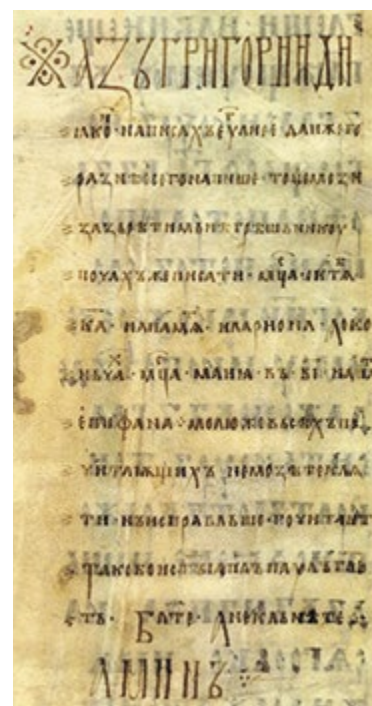 АЗЪ ГРИГОРИИ ДИ
ꙗко҃ · написахъ еу҃лие е · да иже го
разнѣе сего напише · то не мози
зазьрѣти мьнѣ грѣшьникоу
почахъ же писати · мц҃а · октѧ
к҃а · на памѧ · илариона · а око
ньчахъ · мц҃а · маиꙗ · въ · в҃і · на па
епифана · молю же вьсѣхъ по
читаѭщихъ · не мозѣте клѧ
ти · нъ исправльше · почитаите
тако бо и ст҃ъ апл҃ъ паулъ гл҃е
ть · Бл҃те · А не кльнѣте
АМИНЪ